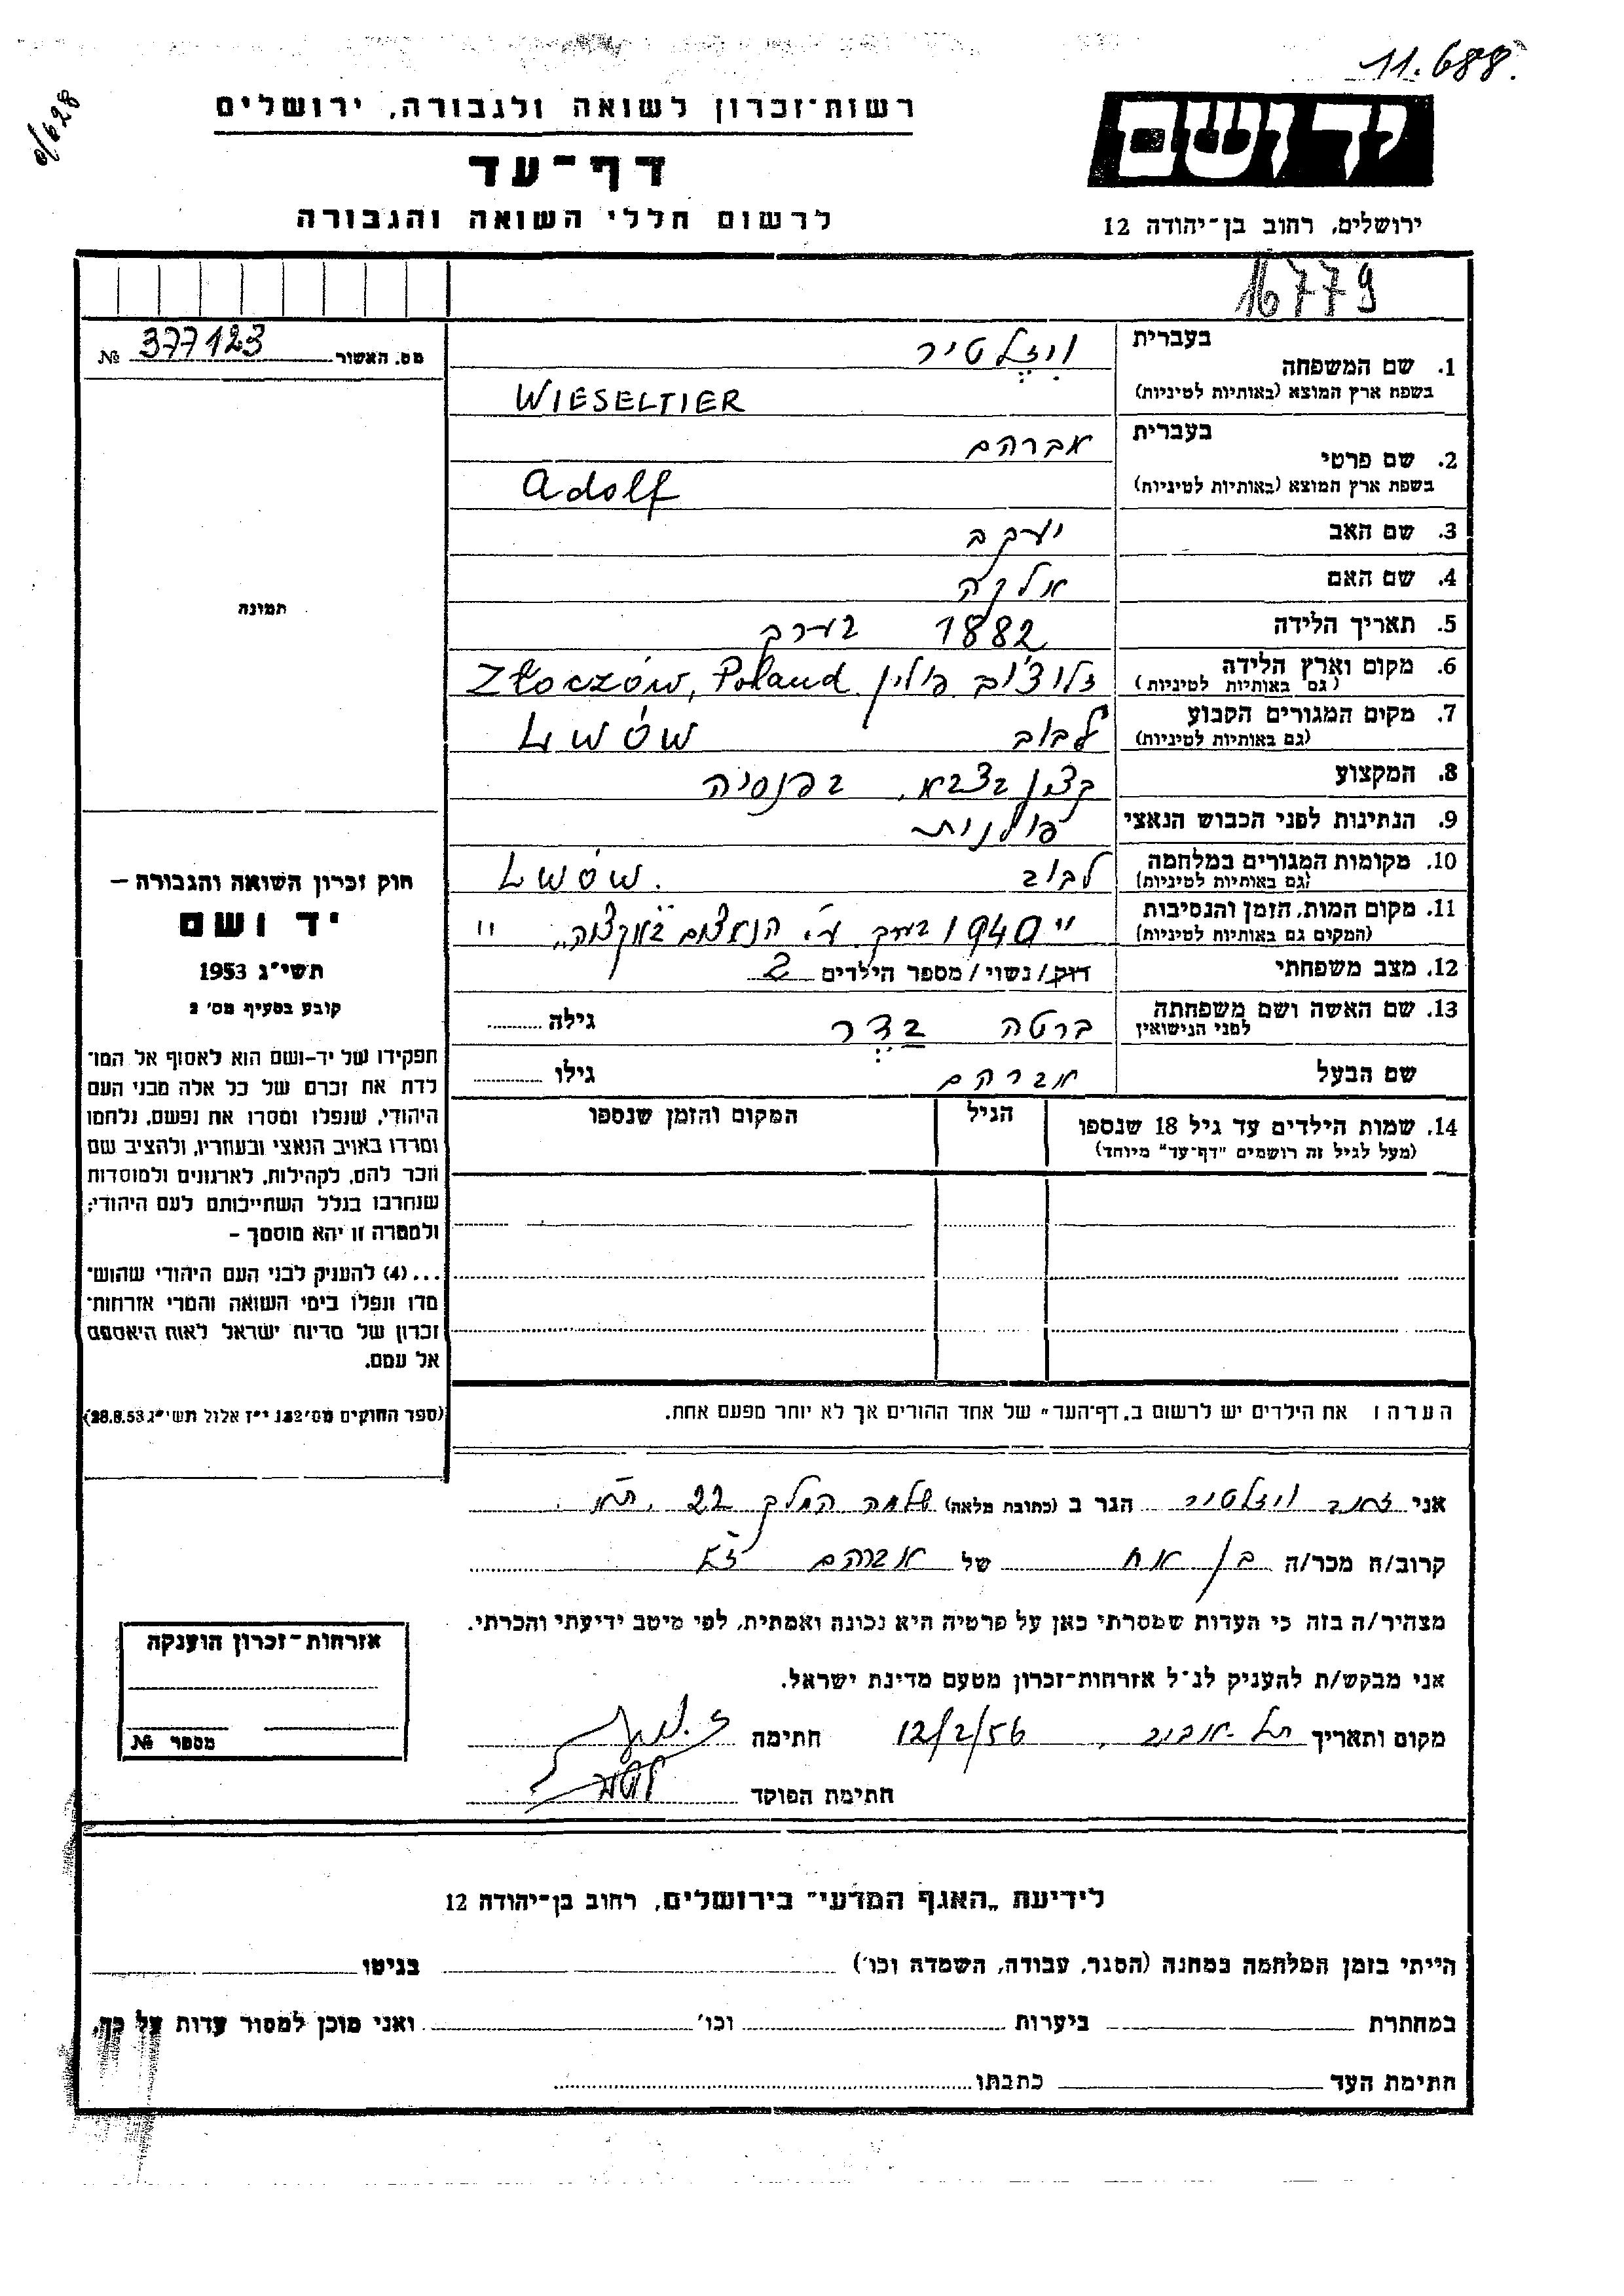 11.688.
ס/628
רשות־זכרון לשואה ולגבורה, ירושלים
דף־עד
לרשום חללי השואה והגבורה
יד ושם
ירושלים, רחוב בן־יהודה 12
16779
מס. האשור 377123 №
תמונה
חוק זכרון השואה והגבורה –
יד ושם
תשי״ג 1953
קובע בסעיף מס׳ 2
תפקידו של יד-ושם הוא לאסוף אל המו־
לדת את זכרם של כל אלה מבני העם
היהודי, שנפלו ומסרו את נפשם, נלחמו
ומרדו באויב הנאצי ובעוזריו, ולהציב שם
וזכר להם, לקהילות, לארגונים ולמוסדות
שנחרבו בגלל השתייכותם לעם היהודי;
ולמטרה זו יהא מוסמך –
...(4) להעניק לבני העם היהודי שהוש־
מדו ונפלו בימי השואה והמרי אזרחות־
זכרון של מדינת ישראל לאות היאספם
אל עמם.
(ספר החוקים מס׳ 132 י״ז אלול תשי״ג 28.8.53)
1. שם המשפחה
בעברית ויזלטיר
בשפת ארץ המוצא (באותיות לטיניות) WIESELTIER
2. שם פרטי
בעברית אברהם
בשפת ארץ המוצא (באותיות לטיניות) Adolf
3. שם האב יעקב
4. שם האם אלקה
5. תאריך הלידה 1882 בערך
6. מקום וארץ הלידה (גם באותיות לטיניות) זלוצ׳וב פולין Złoczów, Poland
7. מקום המגורים הקבוע (גם באותיות לטיניות) לבוב LWÓW
8. המקצוע קצין בצבא, בפנסיה
9. הנתינות לפני הכבוש הנאצי פולנית
10. מקומות המגורים במלחמה (גם באותיות לטיניות) לבוב LWÓW.
11. מקום המות, הזמן והנסיבות (המקום גם באותיות לטיניות) " 1940 בערך ע״י הנאצים „באקציה" "
12. מצב משפחתי רווק/נשוי/מספר הילדים 2
13. שם האשה ושם משפחתה לפני הנישואין ברטה בדר גילה
שם הבעל אברהם גילו
14. שמות הילדים עד גיל 18 שנספו הגיל המקום והזמן שנספו
(מעל לגיל זה רושמים "דף־עד" מיוחד)
הערה: את הילדים יש לרשום ב„דף־העד" של אחד ההורים אך לא יותר מפעם אחת.
אני זאב ויזלטיר הגר ב (כתובת מלאה) שלמה המלך 22, ת״א.
קרוב/ה מכר/ה בן אח של אברהם ז״ל
מצהיר/ה בזה כי העדות שמסרתי כאן על פרטיה היא נכונה ואמתית, לפי מיטב ידיעתי והכרתי.
אני מבקש/ת להעניק לנ״ל אזרחות־זכרון מטעם מדינת ישראל.
מקום ותאריך תל-אביב, 12/2/56 חתימה
חתימת הפוקד
אזרחות־זכרון הוענקה
מספר №
לידיעת „האגף המדעי" בירושלים, רחוב בן־יהודה 12
הייתי בזמן המלחמה במחנה (הסגר, עבודה, השמדה וכו׳) בגיטו
במחתרת ביערות וכו׳ ואני מוכן למסור עדות על כך.
חתימת העד כתבתו